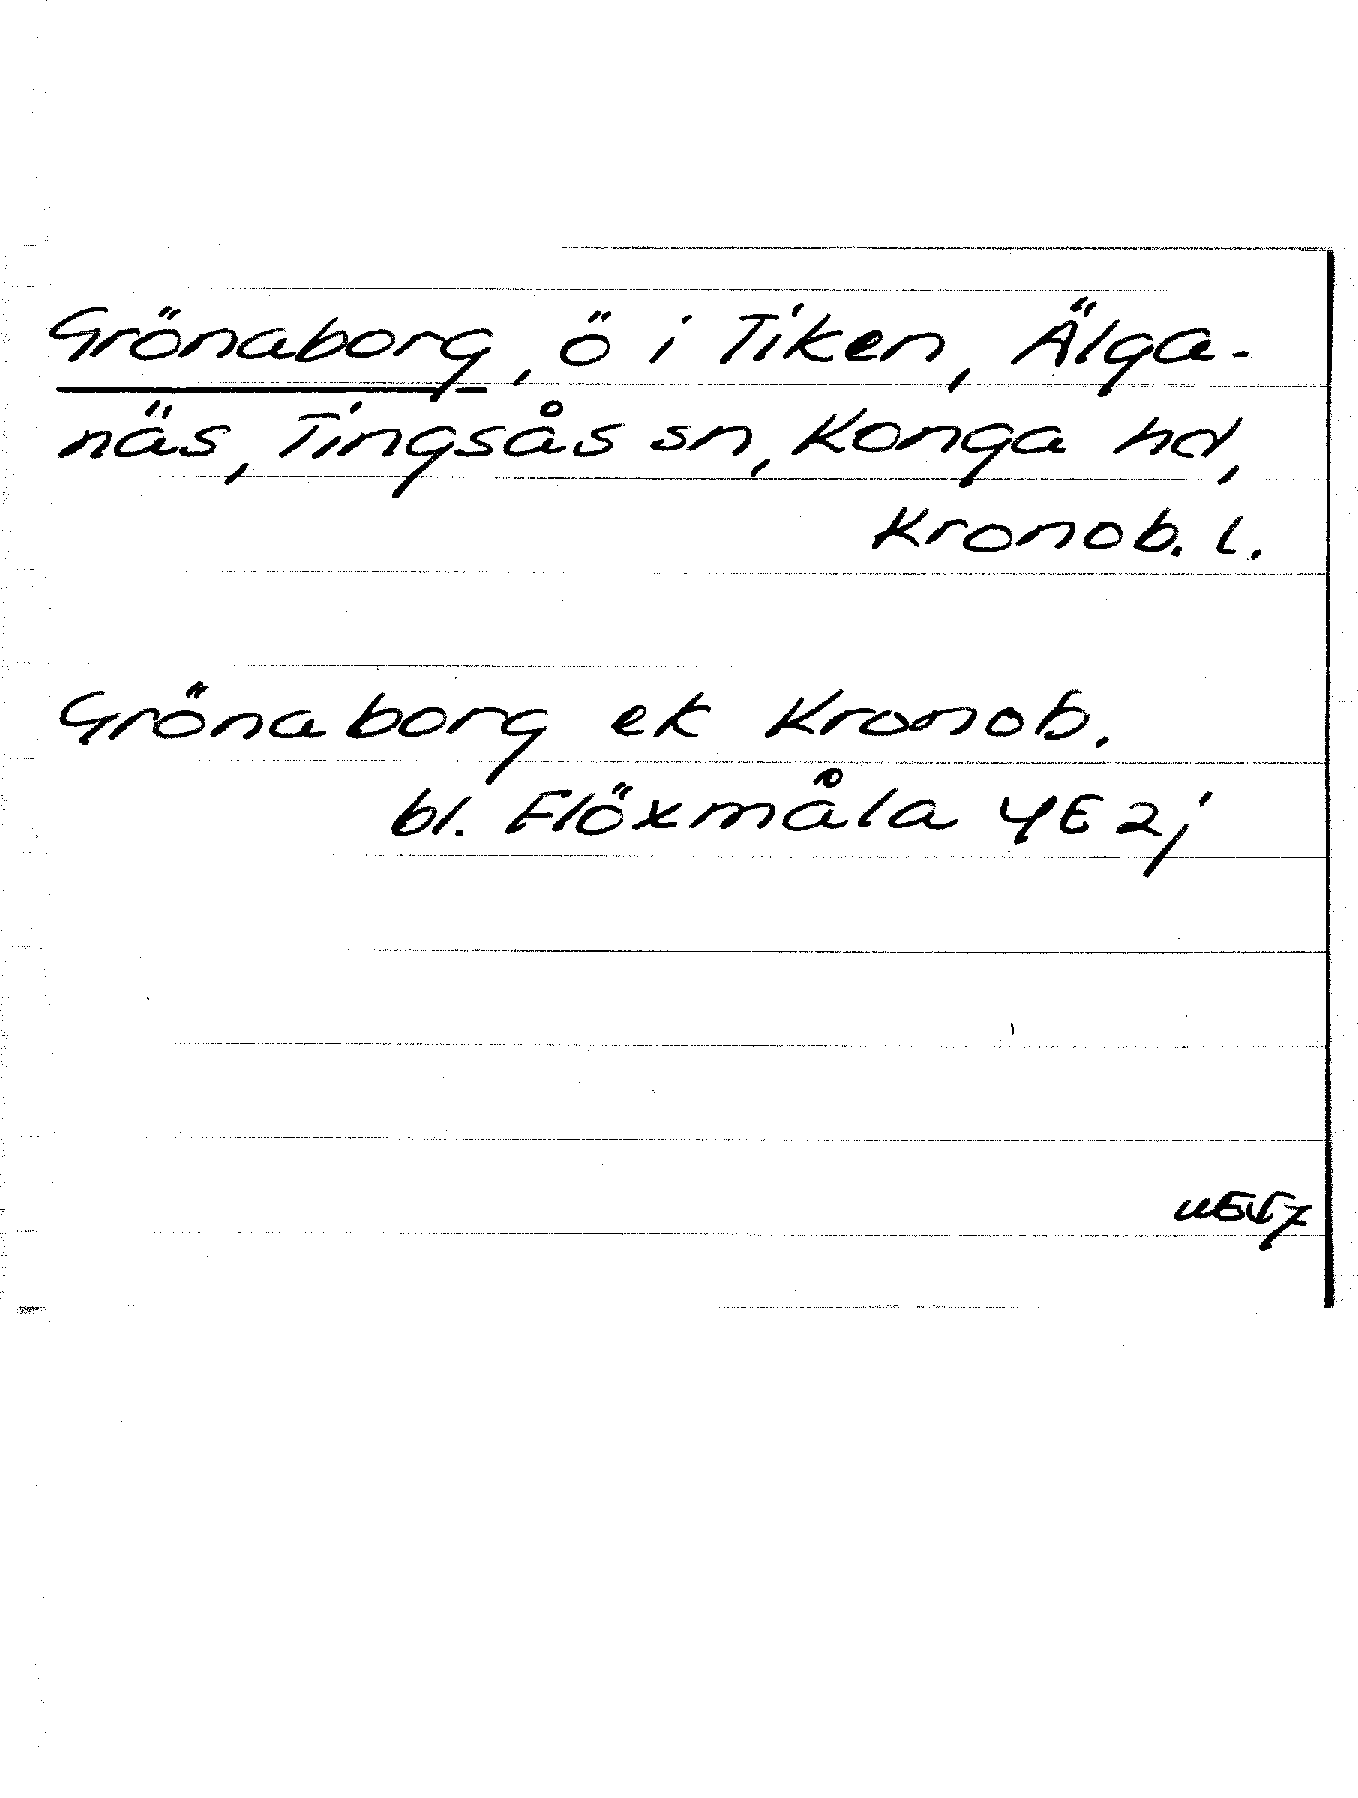 Grönaborg, ö i Tiken, Älga-
näs, Tingsås sn, Konga hd,
Kronob. l.
Grönaborg ek Kronob.
bl. Flöxmåla 4E2j